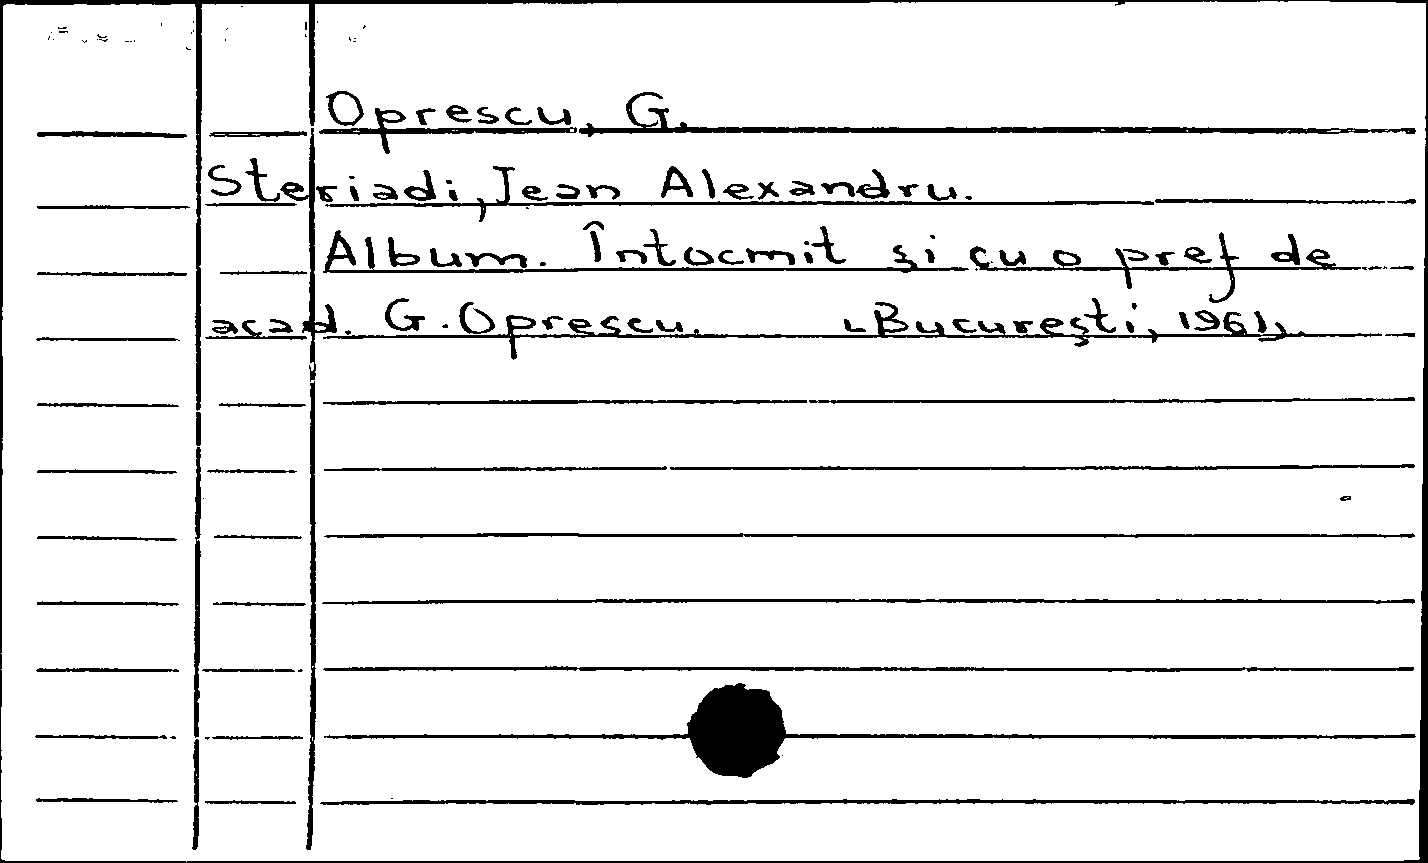 Oprescu, G.
Steriadi, Jean Alexandru.
Album. Întocmit şi cu o pref de
acad. G. Oprescu. [Bucureşti, 1961].